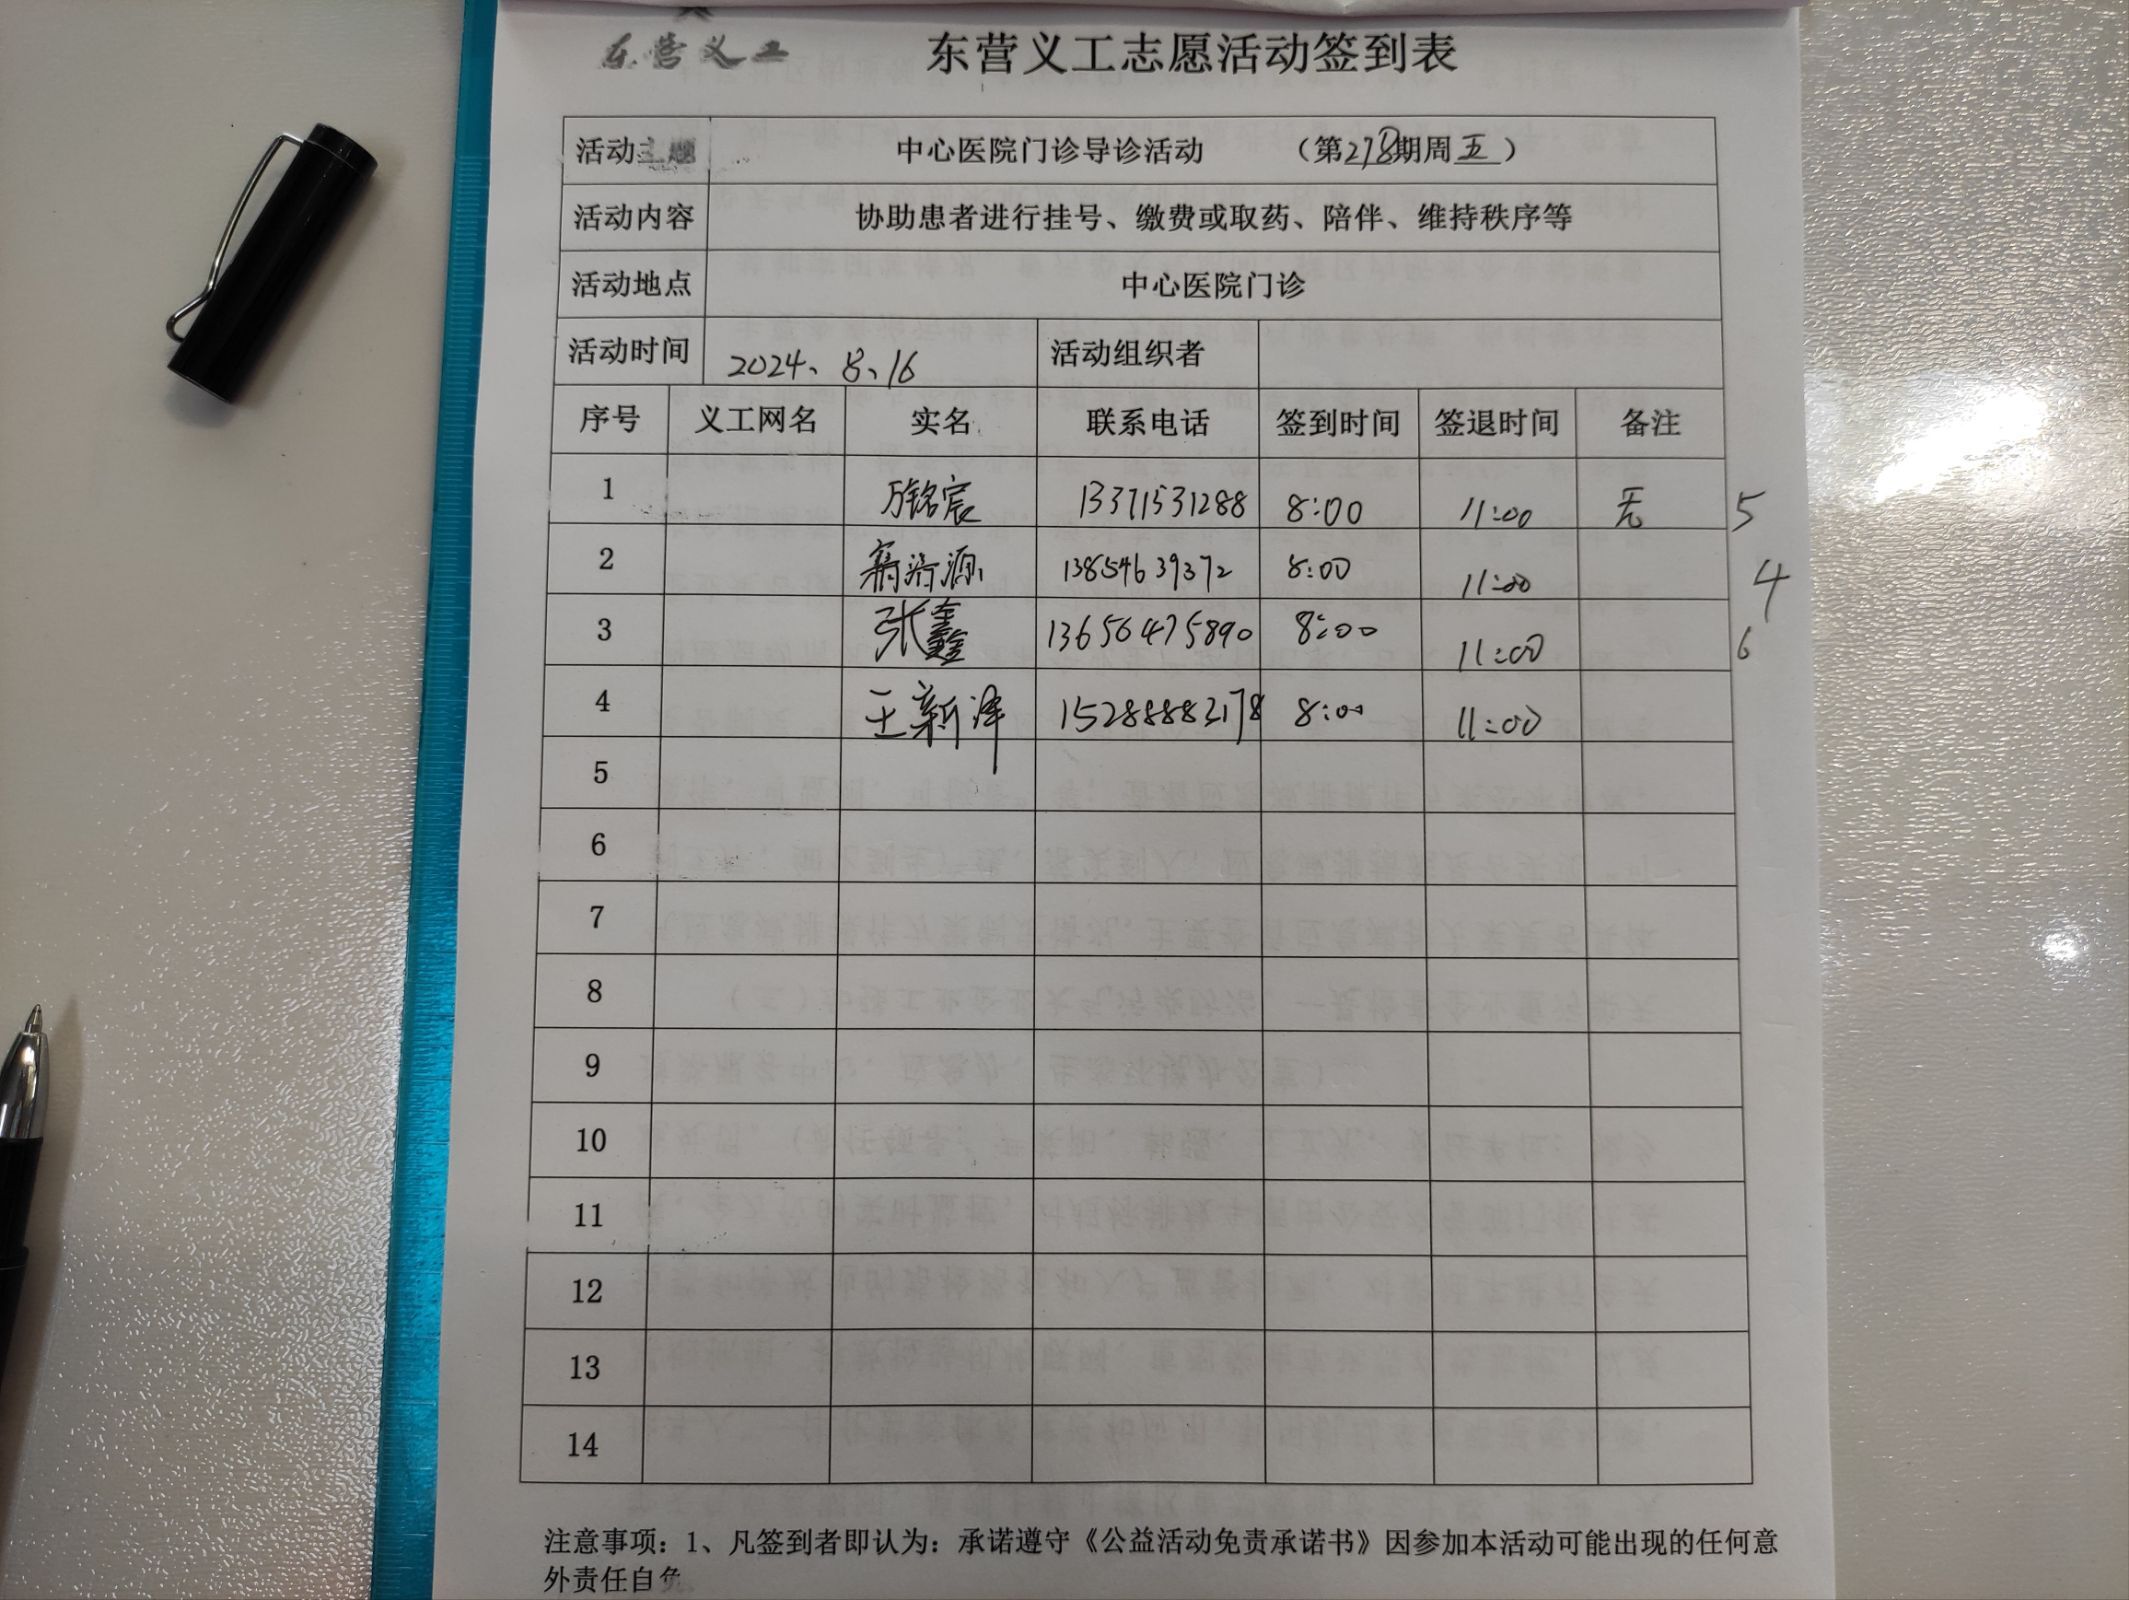 东营义工 东营义工志愿活动签到表
活动主题 中心医院门诊导诊活动 (第278期周五)
活动内容 协助患者进行挂号、缴费或取药、陪伴、维持秩序等
活动地点 中心医院门诊
活动时间 2024、8、16 活动组织者
序号 义工网名 实名 联系电话 签到时间 签退时间 备注
1 万铭宸 13371531288 8:00 11:00 无 5
2 13854639372 8:00 11:00 4
3 张鑫鑫 13656475890 8:00 11:00 6
4 王新泽 15288883178 8:00 11:00
5
6
7
8
9
10
11
12
13
14
注意事项：1、凡签到者即认为：承诺遵守《公益活动免责承诺书》因参加本活动可能出现的任何意
外责任自负